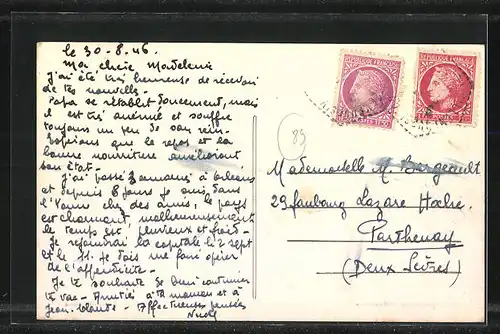 le 30-8-46
Ma chère Madeleine
J'ai été très heureuse de recevoir
de tes nouvelles.
Papa se rétablit doucement, mais
il est très anémié et souffre
toujours un peu de son rein.
Espérons que le repos et la
bonne nourriture amélioreront
son état.
J'ai passé 3 semaines à Orléans
et depuis 8 jours je suis dans
l'Yonne chez des amis. Le pays
est charmant, malheureusement
le temps est pluvieux et froid.
Je rejoindrai la capitale le 2 sept
et le 11 je dois me faire opérer
de l'appendicite.
Je te souhaite de bien continuer
tes vac. Amitiés à ta maman et à
Jean-Claude. Affectueuses pensées
RÉPUBLIQUE FRANÇAISE
RÉPUBLIQUE FRANÇAISE
POSTES
89
Mademoiselle M. Bergeault
29 faubourg Lazare Hoche
Parthenay
(Deux Sèvres)